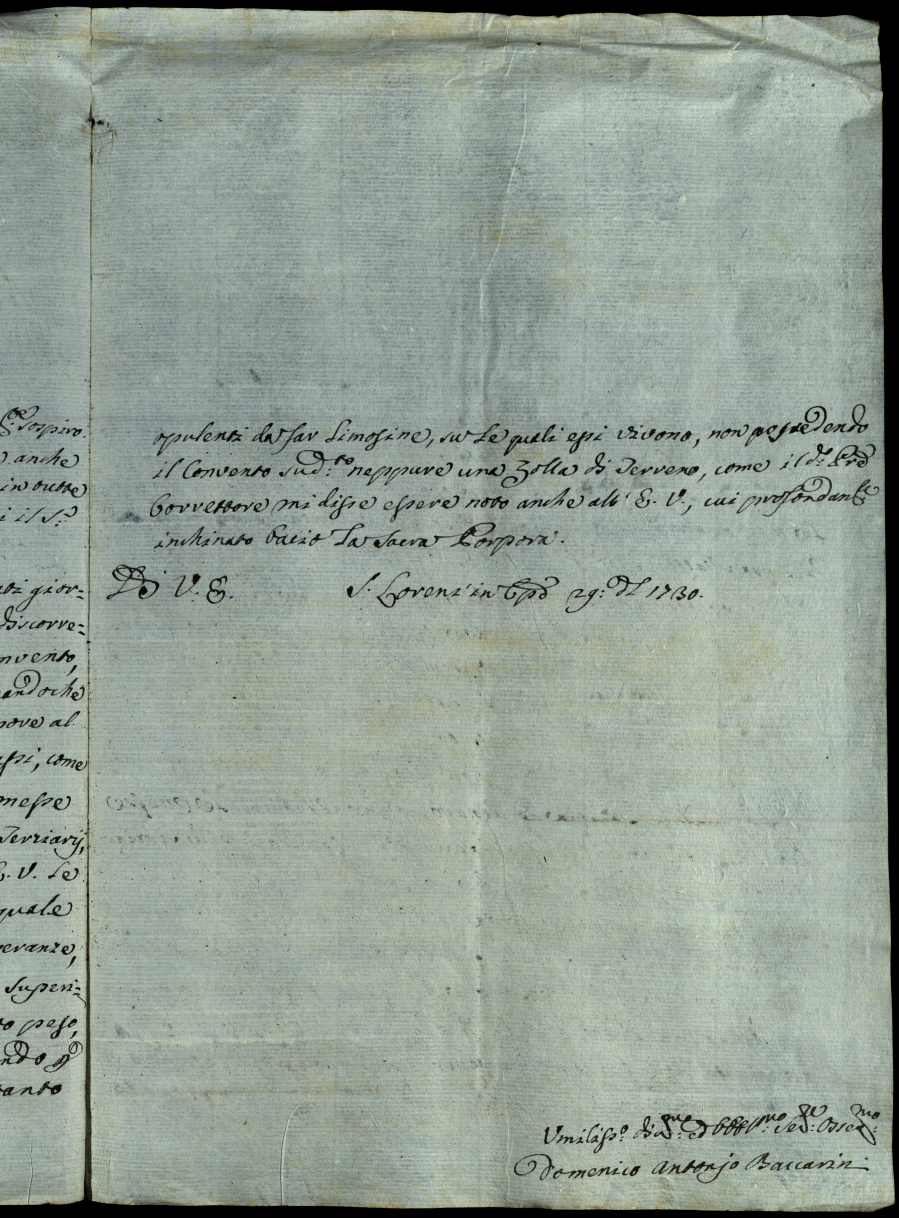 S.re sospiro.
anche
in tutte
i il S.r
ti gior=
discorre=
nvento,
andoche
nore al
ssi, come
messe
Terziarij,
V. le
quale
eranze,
superi=
to peso,
ndo p
tanto
opulenti da far Limosine, su le quali essi vivono, non possedendo
il Convento sud.to neppure una Zolla di Terreno, come il d.o Pre
Correttore mi disse essere noto anche all' E. V., cui profondam.te
inchinato bacio La Sacra Porpora.
Di V. E. S. Loren' in Cpo 29: 1730.
Vmiliss.o ed Obbl.mo
Domenico Antonjo Baccarini